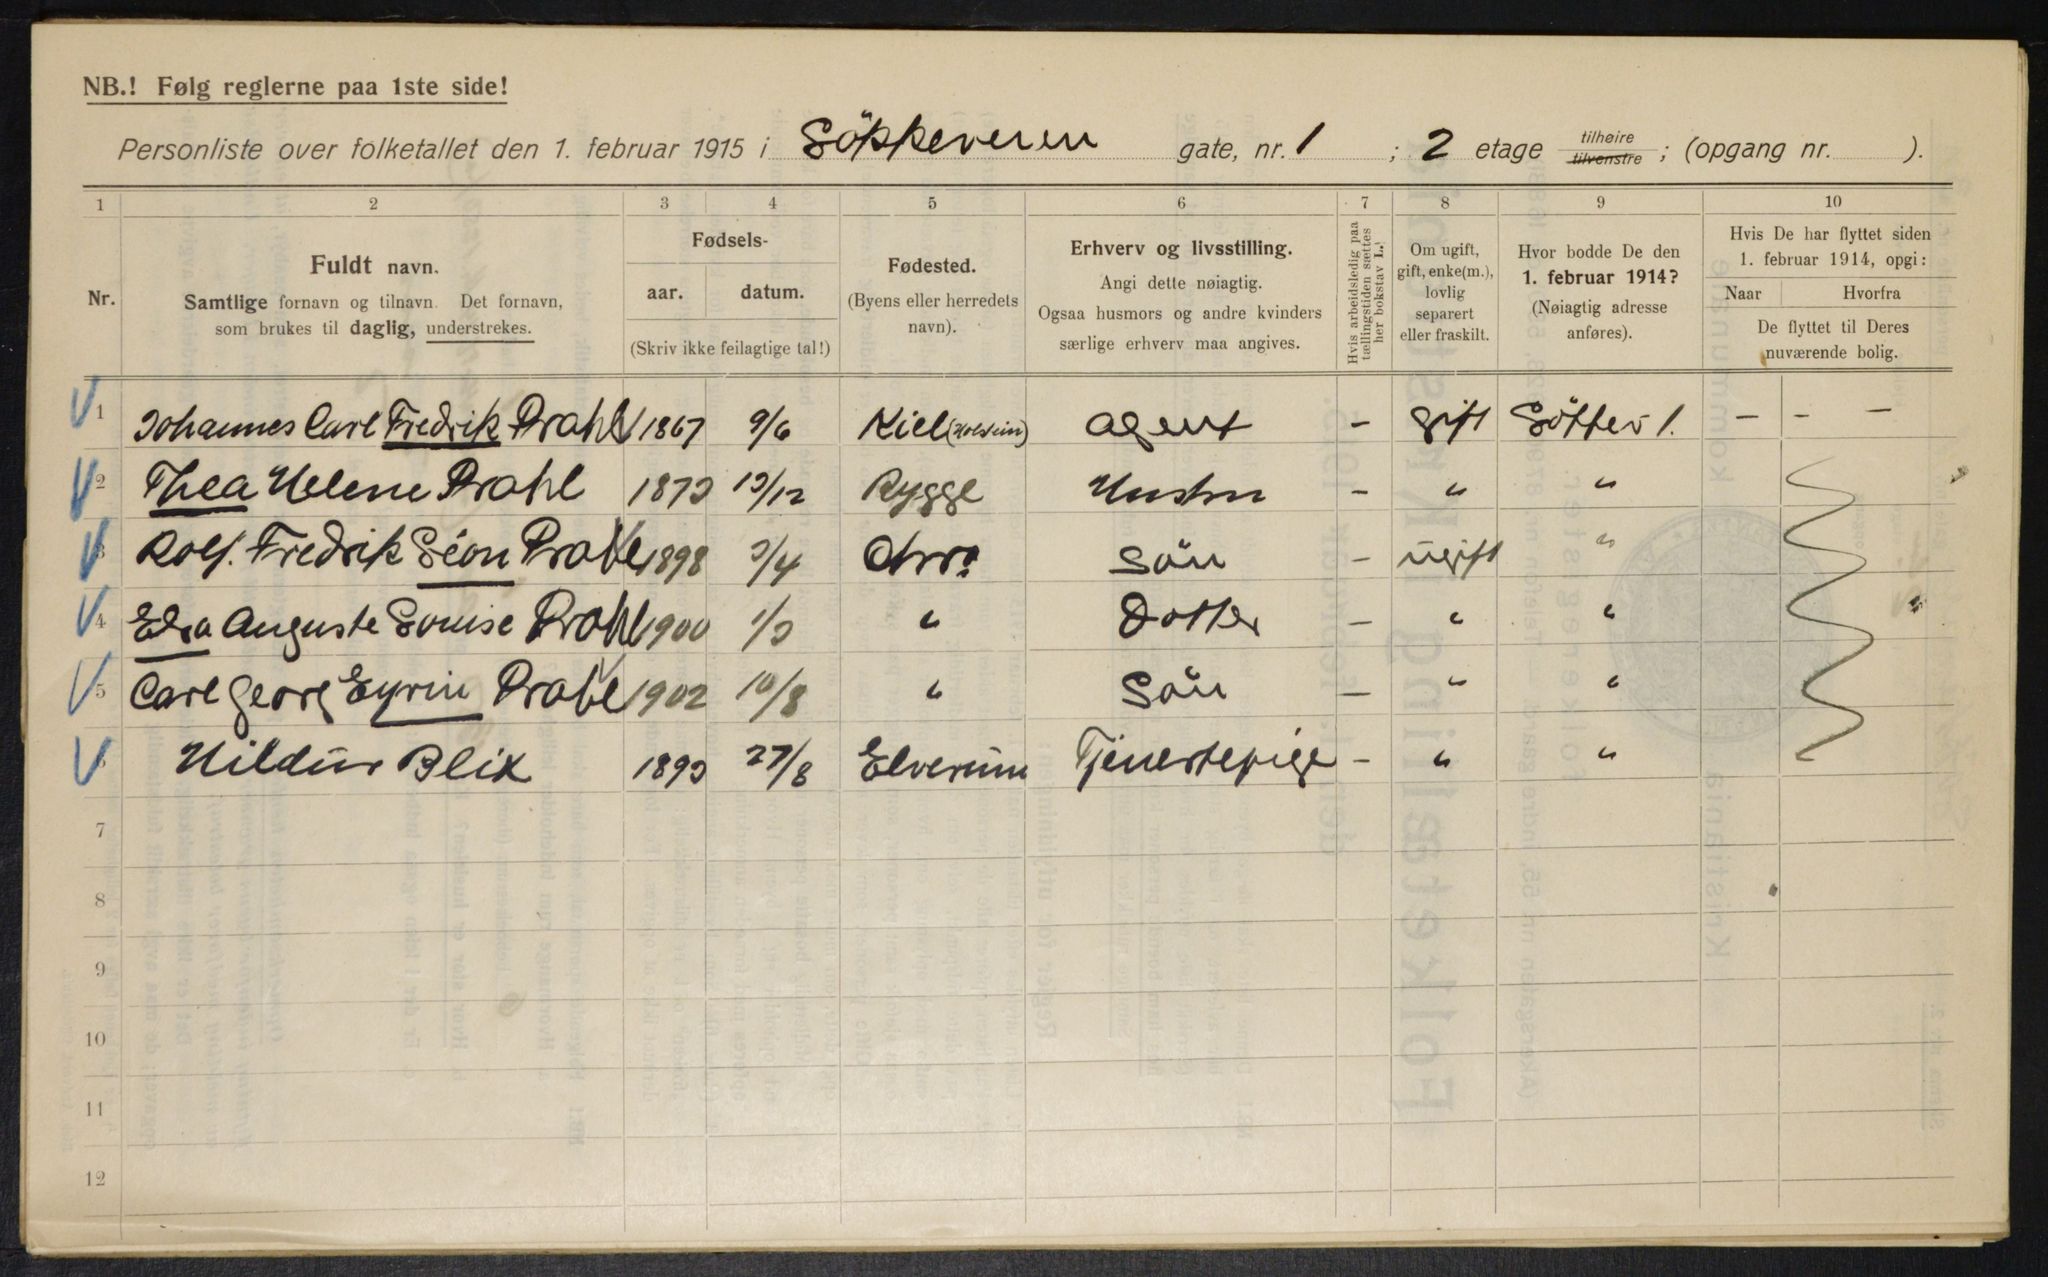 NB.! Følg reglerne paa 1ste side!
Personliste over folketallet den 1. februar 1915 i Sökkeveien gate, nr. 1 ; 2 etage tilhøire tilvenstre ; (opgang nr. ).
1 2 3 4 5 6 7 8 9 10
Nr.
Fuldt navn.
Samtlige fornavn og tilnavn. Det fornavn,
som brukes til daglig, understrekes.
Fødsels-
aar. datum.
(Skriv ikke feilagtige tal!)
Fødested.
(Byens eller herredets
navn).
Erhverv og livsstilling.
Angi dette nøiagtig.
Ogsaa husmors og andre kvinders
særlige erhverv maa angives.
Hvis arbeidsledig paa
tællingstiden sættes
her bokstav L.
Om ugift,
gift, enke(m.),
lovlig
separert
eller fraskilt.
Hvor bodde De den
1. februar 1914?
(Nøiagtig adresse
anføres).
Hvis De har flyttet siden
1. februar 1914, opgi:
Naar Hvorfra
De flyttet til Deres
nuværende bolig.
1 Johannes Carl Fredrik Prahl 1867 9/6 Kiel (Holstein) Agent - gift - - -
2 Thea Helene Prahl 1873 13/12 Rygge Hustru - " "
3 Rolf. Fredrik Prahl 1898 3/4 Chra. Sön - ugift "
4 Auguste Louise Prahl 1900 1/3 " Dotter - " "
5 Carl Georg Prahl 1902 10/8 " Sön - " "
6 Hildur Blix 1893 27/8 Elverum Tjenestepige - " "
7
8
9
10
11
12